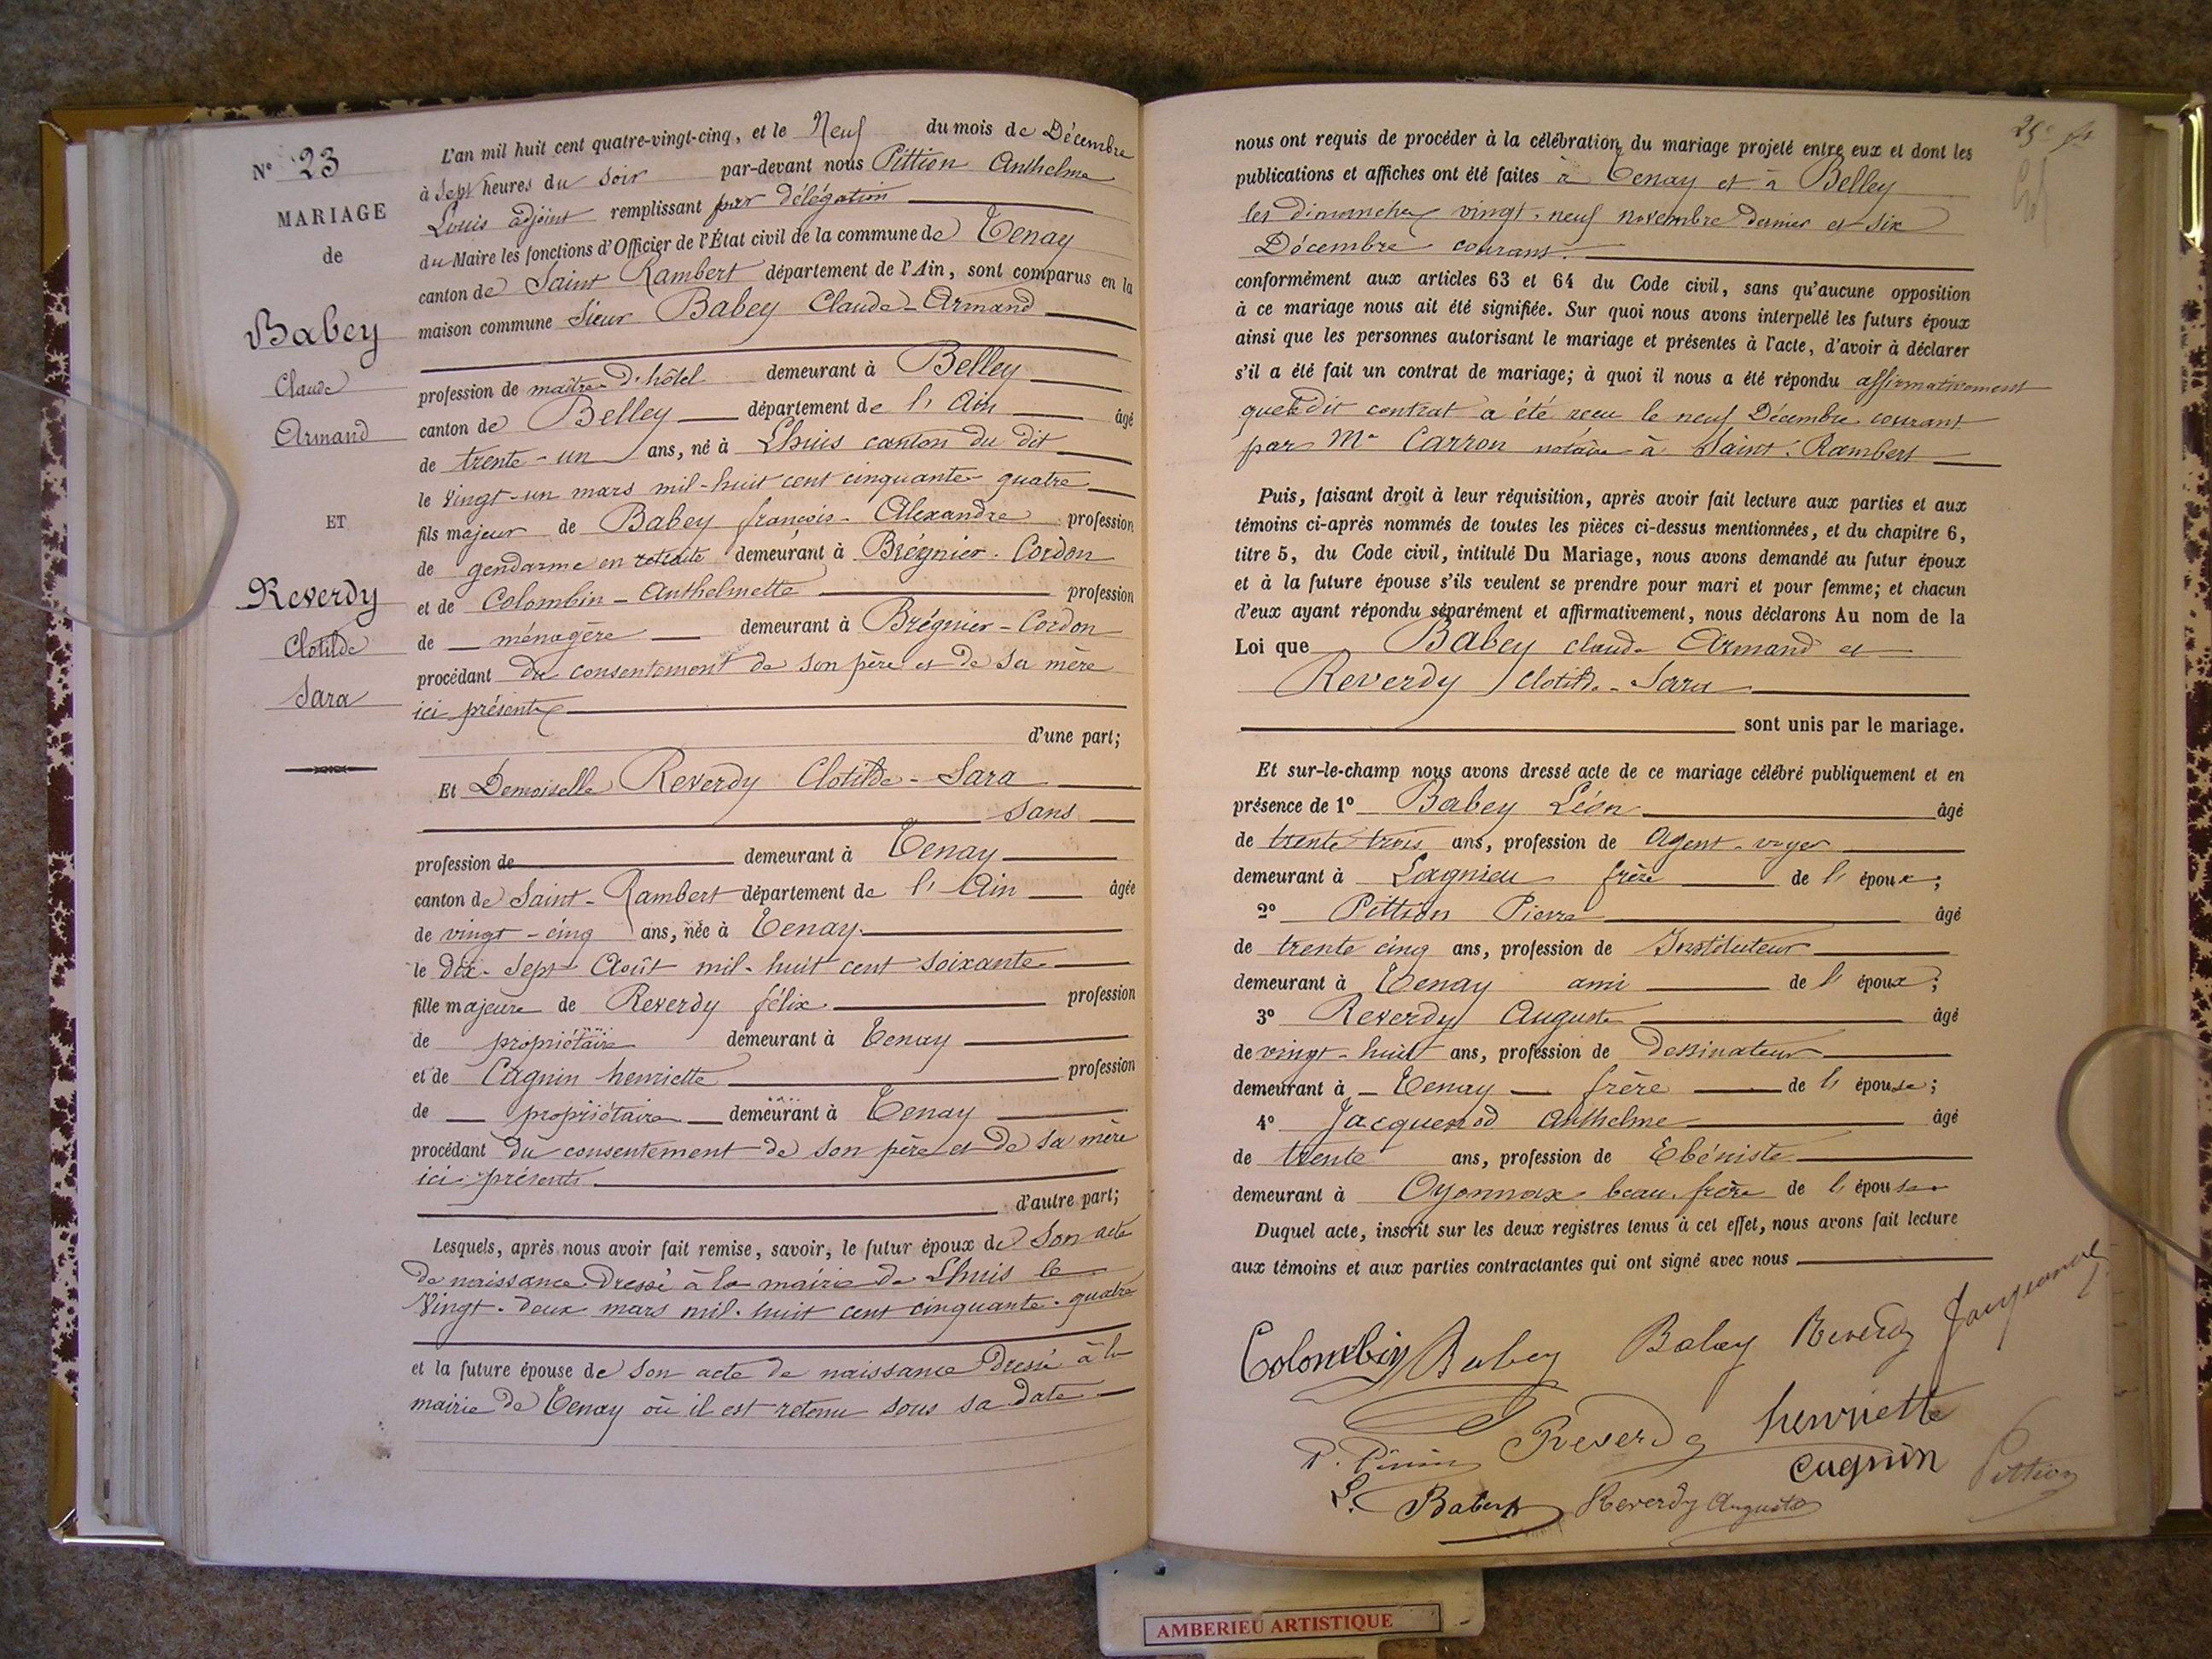 N° 23
MARIAGE
de
Babey
Claude
Armand
ET
Reverdy
Clotilde
Sara
L'an mil huit cent quatre-vingt-cinq, et le Neuf du mois de Décembre
à Sept heures du soir par-devant nous Pittion Anthelme
Louis adjoint remplissant par délégation
du Maire les fonctions d'Officier de l'État civil de la commune de Tenay
canton de Saint Rambert département de l'Ain, sont comparus en la
maison commune Sieur Babey Claude-Armand
profession de maître d'hôtel demeurant à Belley
canton de Belley département de l'Ain âgé
de trente-un ans, né à Lhuis canton du dit
le Vingt-un mars mil-huit cent cinquante-quatre
fils majeur de Babey françois-Alexandre profession
de gendarme en retraite demeurant à Brégnier-Cordon
et de Colombin-Anthelmette profession
de ménagère demeurant à Brégnier-Cordon
procédant du consentement de son père et de sa mère
ici présents
d'une part;
Et Demoiselle Reverdy Clotilde-Sara
Sans
profession de demeurant à Tenay
canton de Saint-Rambert département de l'Ain âgée
de vingt-cinq ans, née à Tenay
le Dix-Sept Août mil-huit cent soixante
fille majeure de Reverdy félix profession
de propriétaire demeurant à Tenay
et de Cagnin henriette profession
de propriétaire demeurant à Tenay
procédant du consentement de son père et de sa mère
ici présents
d'autre part;
Lesquels, après nous avoir fait remise, savoir, le futur époux de Son acte
de naissance Dressé à la mairie de Lhuis le
Vingt-deux mars mil-huit cent cinquante-quatre
et la future épouse de Son acte de naissance Dressé à la
mairie de Tenay où il est retenu sous sa date
nous ont requis de procéder à la célébration du mariage projeté entre eux et dont les
publications et affiches ont été faites à Tenay et à Belley
les dimanches vingt-neuf novembre dernier et six
Décembre courant.
conformément aux articles 63 et 64 du Code civil, sans qu'aucune opposition
à ce mariage nous ait été signifiée. Sur quoi nous avons interpellé les futurs époux
ainsi que les personnes autorisant le mariage et présentes à l'acte, d'avoir à déclarer
s'il a été fait un contrat de mariage; à quoi il nous a été répondu affirmativement
que dit contrat a été reçu le neuf Décembre courant
par Me Carron notaire à Saint-Rambert
Puis, faisant droit à leur réquisition, après avoir fait lecture aux parties et aux
témoins ci-après nommés de toutes les pièces ci-dessus mentionnées, et du chapitre 6,
titre 5, du Code civil, intitulé Du Mariage, nous avons demandé au futur époux
et à la future épouse s'ils veulent se prendre pour mari et pour femme; et chacun
d'eux ayant répondu séparément et affirmativement, nous déclarons Au nom de la
Loi que Babey Claude Armand et
Reverdy Clotilde-Sara
sont unis par le mariage.
Et sur-le-champ nous avons dressé acte de ce mariage célébré publiquement et en
présence de 1° Babey Léon âgé
de trente-trois ans, profession de Agent-voyer
demeurant à Lagnieu frère de l'époux;
2° Pittion Pierre âgé
de trente cinq ans, profession de Instituteur
demeurant à Tenay ami de l'époux;
3° Reverdy Auguste âgé
de vingt-huit ans, profession de dessinateur
demeurant à Tenay frère de l'épouse;
4° Jacquemod Anthelme âgé
de trente ans, profession de Ebéniste
demeurant à Oyonnax beau-frère de l'épouse
Duquel acte, inscrit sur les deux registres tenus à cet effet, nous avons fait lecture
aux témoins et aux parties contractantes qui ont signé avec nous
Colombin Babey Babey Reverdy
Reverdy henriette
cagnin Pittion
L. Babey Reverdy Auguste
AMBERIEU ARTISTIQUE